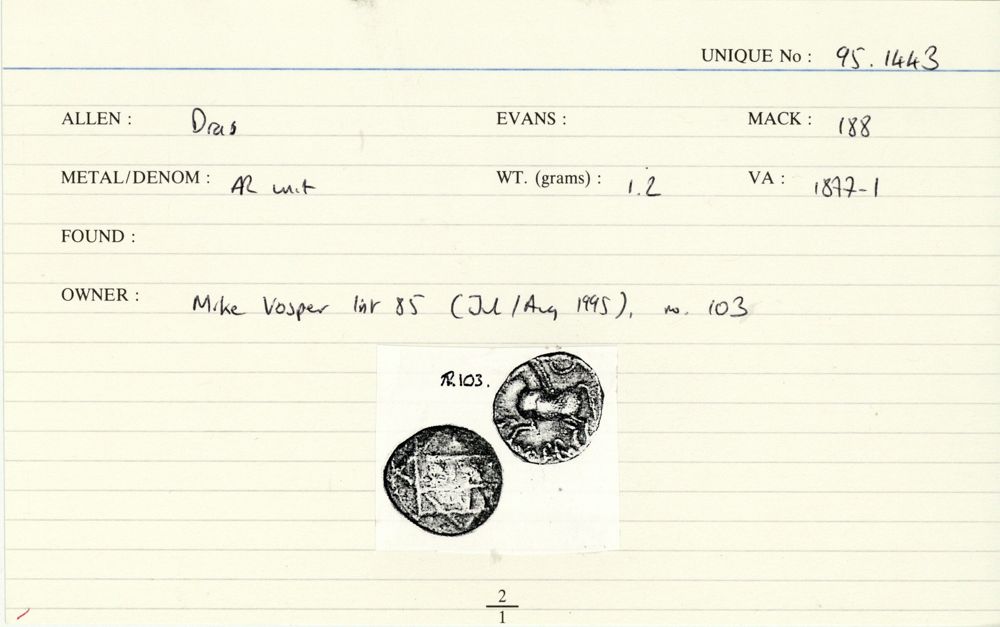 UNIQUE No : 95.1443
ALLEN : Dras EVANS : MACK : 188
METAL/DENOM : AR unit WT. (grams) : 1.2 VA : 1877-1
FOUND :
OWNER : Mike Vosper list 85 (Jul/Aug 1995), no. 103
AR.103.
2
1